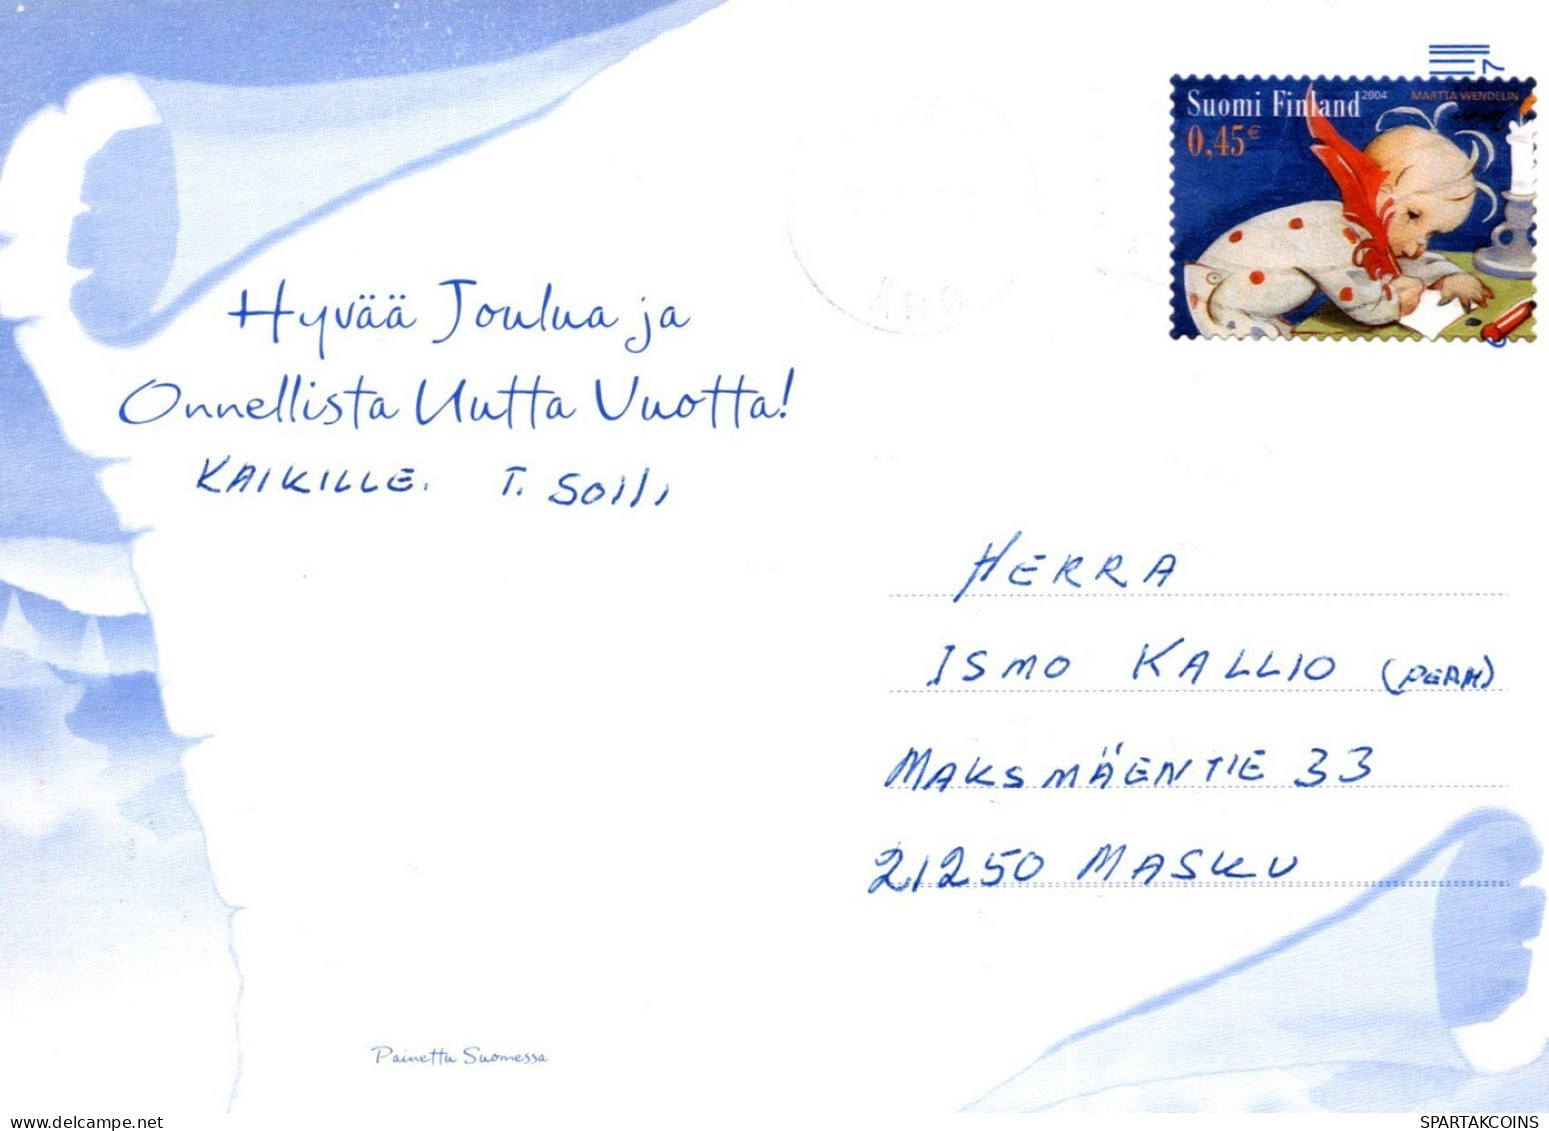 Suomi Finland 2004 MARTTA WENDELIN
0,45€
Hyvää Joulua ja
Onnellista Uutta Vuotta!
KAIKILLE. T. SOILI
HERRA
ISMO KALLIO (PERH)
MAKSMÄENTIE 33
21250 MASKU
Painettu Suomessa
delcampe.net
SPARTAKCOINS